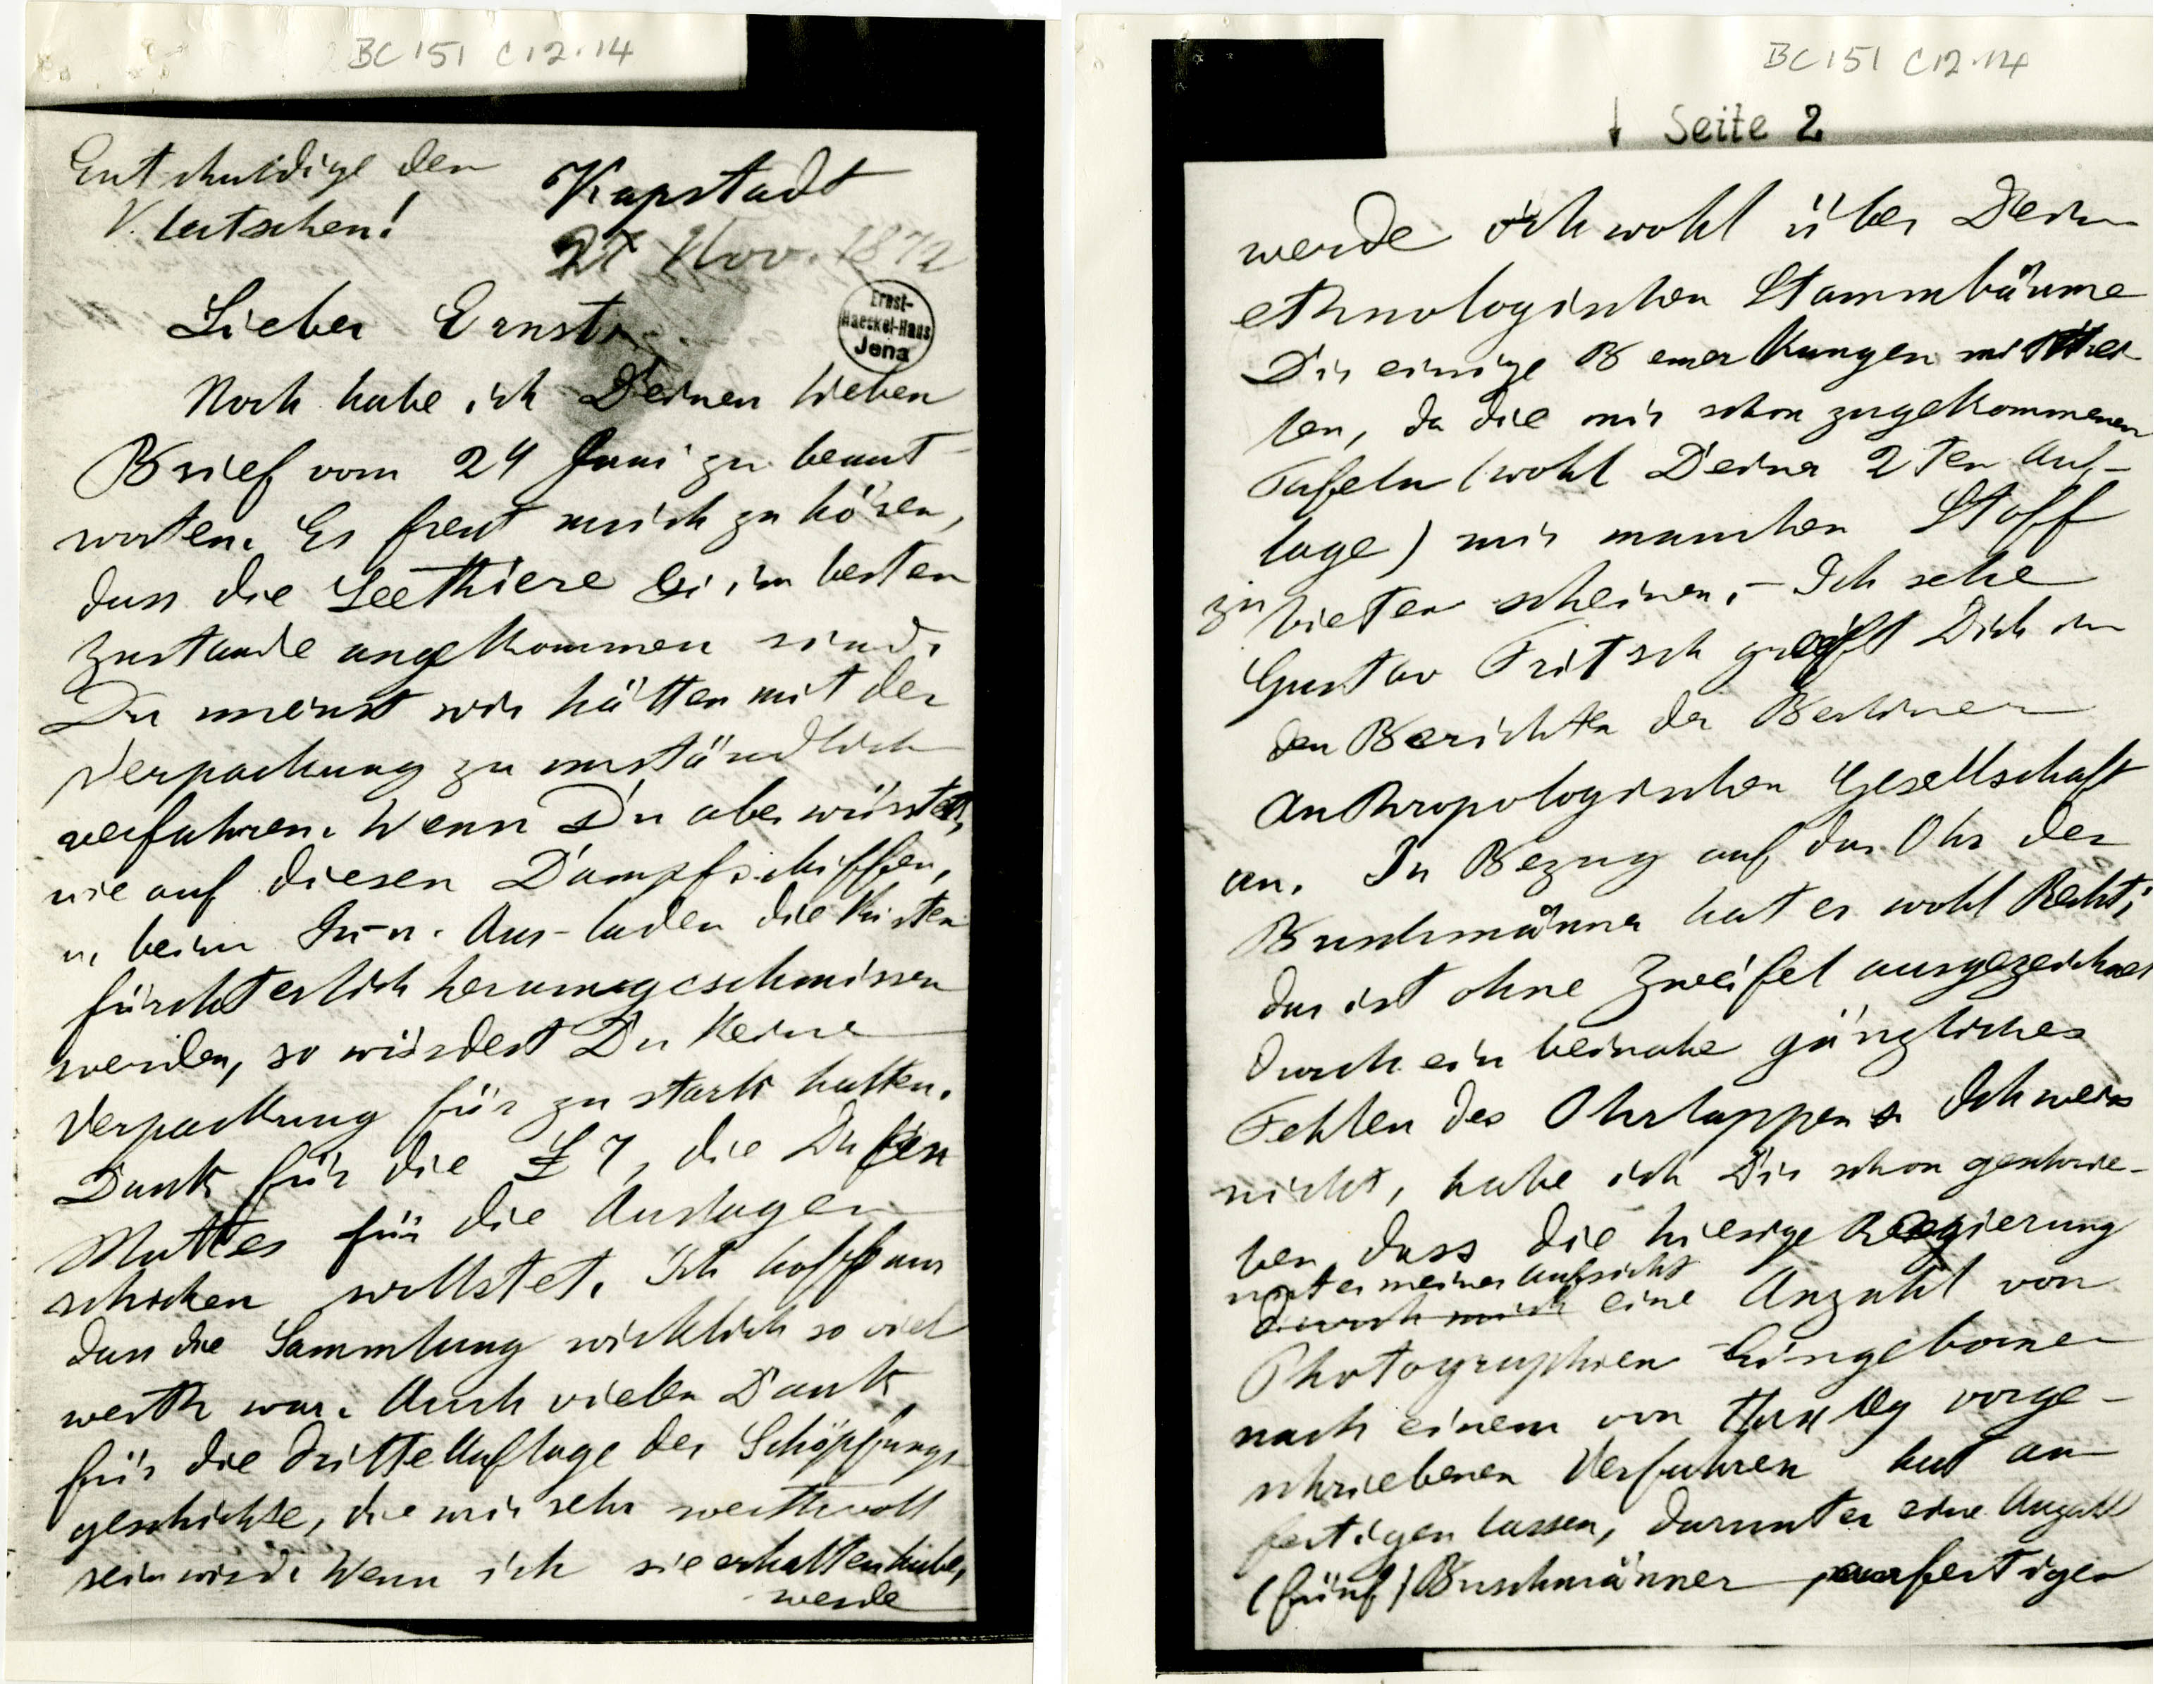 BC 151 C12.14
Entschuldige den
Klatschen!
Kapstadt
27 Nov. 1872
Ernst-
Haeckel-Haus
Jena
Lieber Ernst
Noch habe ich Deinen lieben
Brief vom 24 Juni zu beant-
worten. Es freut mich zu hören,
dass die Seethiere im besten
Zustande angekommen sind.
Du meinst wir hätten mit der
Verpackung zu umständlich
verfahren. Wenn Du aber wüsstest,
wie auf diesen Dampfschiffen,
u. beim Ein- u. Aus-laden die Kisten
fürchterlich herumgeschmissen
werden, so würdest Du keine
Verpackung für zu stark halten.
Dank für die £7, die Du
für die Auslagen
schicken wolltest. Ich hoffe nur
dass die Sammlung wirklich so viel
werth war. Auch vielen Dank
für die dritte Auflage der Schöpfungs-
geschichte, die mir sehr werthvoll
sein wird. Wenn ich sie erhalten habe,
werde
BC 151 C12.14
↓ Seite 2
werde ich wohl über Deine
ethnologischen Stammbäume
Dir einige Bemerkungen mitthei
len, da die mir schon zugekommenen
Tafeln (wohl Deiner 2ten Auf-
lage) mir manchen Stoff
zu bieten scheinen. - Ich sehe
Gustav Fritsch greift Dich in
den Berichten der Berliner
Anthropologischen Gesellschaft
an. In Bezug auf das Ohr der
Buschmänner hat er wohl Recht;
das ist ohne Zweifel ausgezeichnet
durch ein beinahe gänzliches
Fehlen des Ohrlappens. Ich weiss
nicht, habe ich Dir schon geschrie-
ben dass die hiesige Regierung
unter meiner Aufsicht
durch mich eine Anzahl von
Photographien Eingeborner
nach einem von Huxley vorge-
schriebenen Verfahren hat an
fertigen lassen, darunter eine Anzahl
(fünf) Buschmänner anfertigen